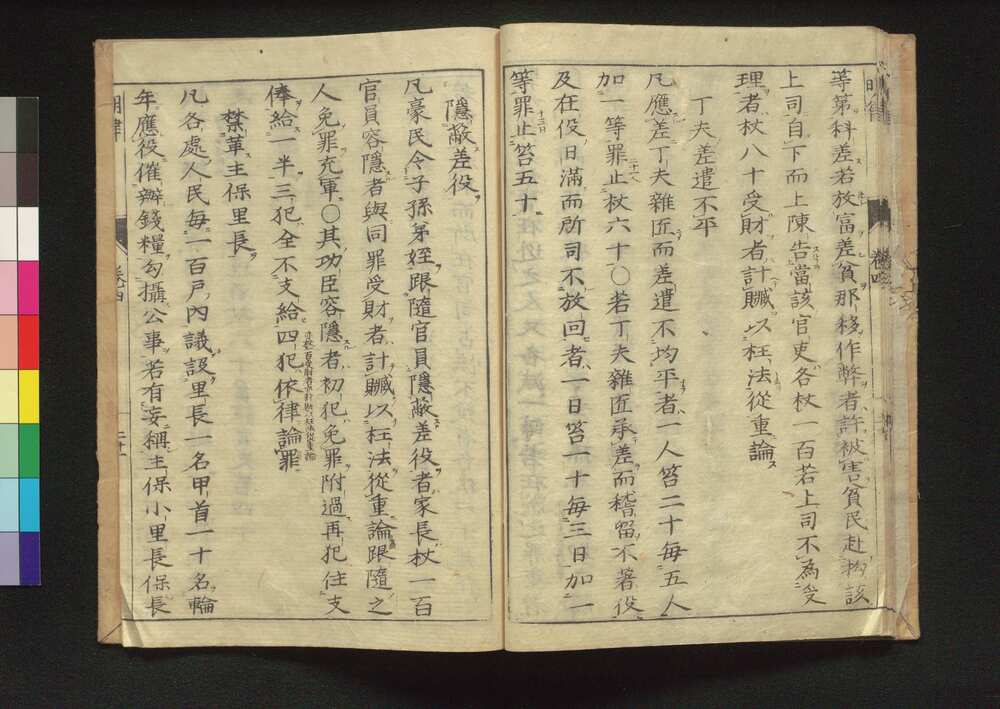 等第科差若放富差貧那移作弊者許被害貧民赴拘該
上司自下而上陳告當該官吏各杖一百若上司不為受
理者杖八十受財者計贓以枉法從重論
丁夫差遣不平
凡應差丁夫雜匠而差遣不均平者一人笞二十每五人
加一等罪止杖六十〇若丁夫雜匠承差而稽留不著役
及在役日滿而所司不放回者一日笞一十每三日加一
等罪止笞五十
隱蔽差役
凡豪民令子孫弟姪跟隨官員隱蔽差役者家長杖一百
官員容隱者與同罪受財者計贓以枉法從重論跟隨之
人免罪充軍〇其功臣容隱者初犯免罪附過再犯住支
俸給一半三犯全不支給四犯依律論罪
禁革主保里長
凡各處人民每一百戸內議設里長一名甲首一十名輪
年應役催辦錢糧勾攝公事若有妄稱主保小里長保長
明律
卷四